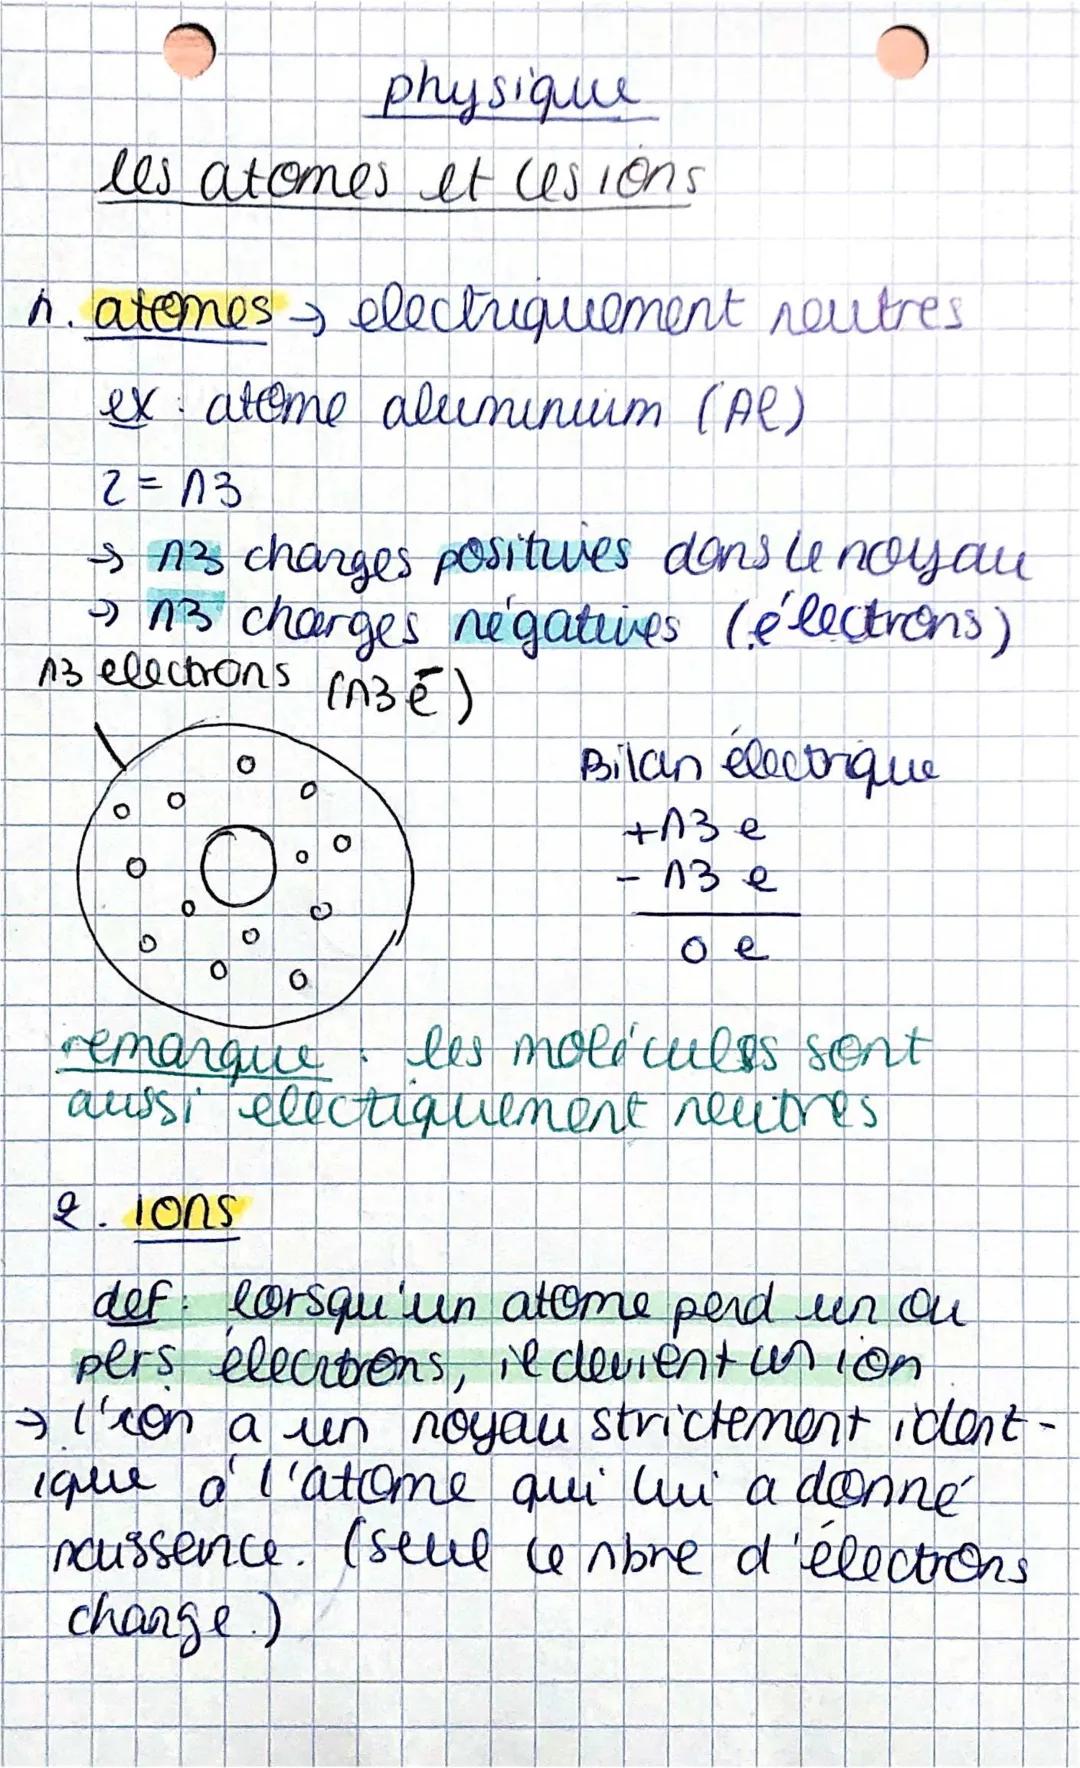 physique
les atomes et les ions
1. atomes → electriquement neutres
ex : atome aluminium (Al)
Z = 13
→ 13 charges positives dans le noyau
→ 13 charges négatives (électrons)
13 electrons (13 e⁻)
Bilan électrique
+13 e
- 13 e
0 e
remarque : les molécules sont
aussi electiquement neutres
2. ions
def : lorsqu'un atome perd un ou
plrs électrons, il devient un ion
→ l'ion a un noyau strictement ident-
ique à l'atome qui lui a donné
naissence. (seul le nbre d'électrons
change.)